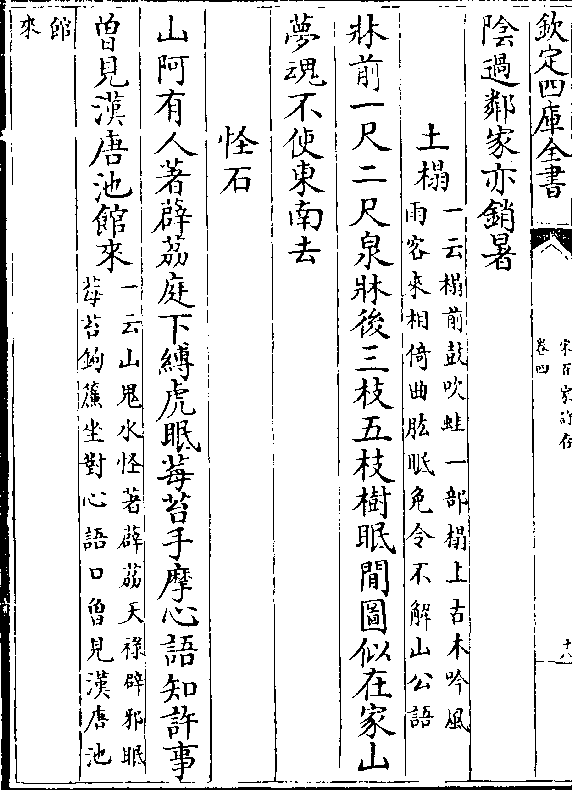 欽定四庫全書
宋百家詩存
卷四
十八
陰過鄰家亦銷暑
土榻
一云榻前鼓吹蛙一部榻上古木吟風
雨客來相倚曲肱眠免令不解山公語
牀前一尺二尺泉牀後三枝五枝樹眠間圖似在家山
夢魂不使東南去
怪石
山阿有人著薜荔庭下縛虎眠莓苔手摩心語知許事
曽見漢唐池館來
一云山鬼水怪著薜荔天祿辟邪眠
莓苔鉤簾坐對心語口曽見漢唐池
館來